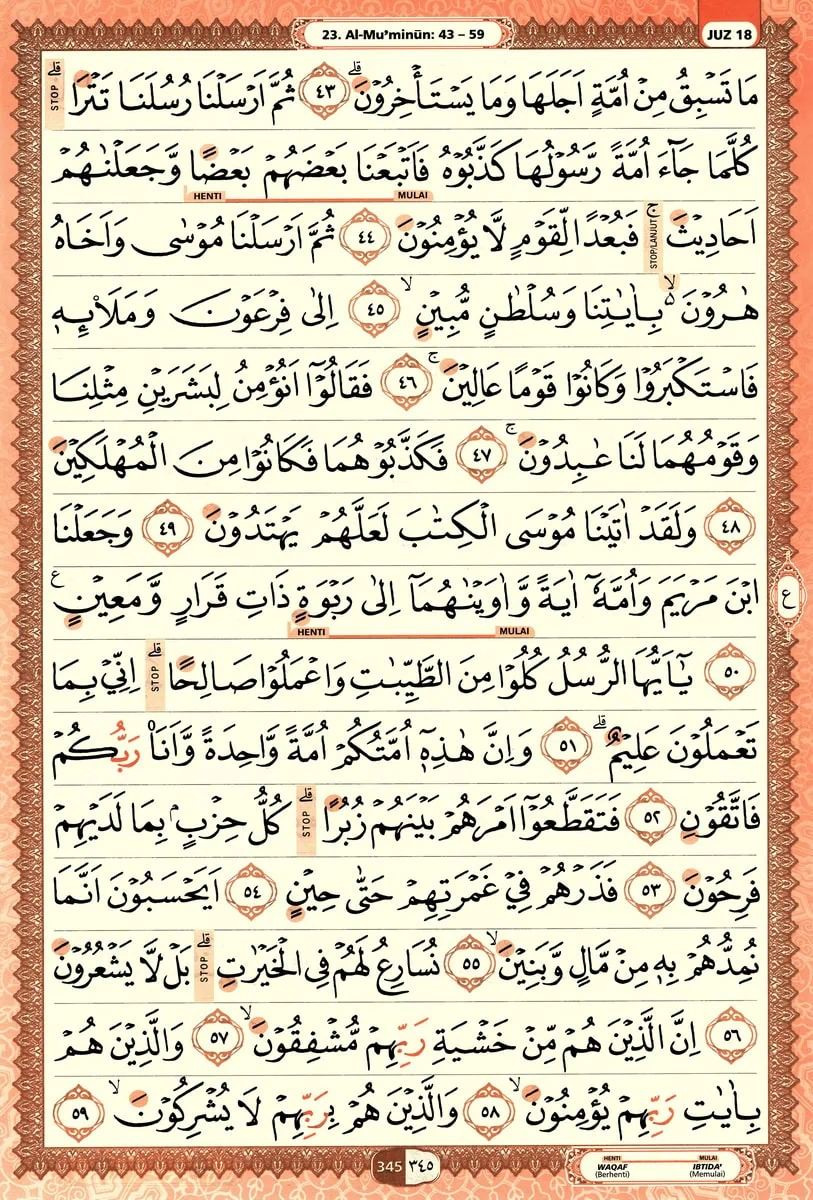 23. Al-Mu'minūn: 43 – 59
JUZ 18
مَا تَسْبِقُ مِنْ اُمَّةٍ اَجَلَهَا وَمَا يَسْتَأْخِرُوْنَ ۗ ٤٣ ثُمَّ اَرْسَلْنَا رُسُلَنَا تَتْرَا ۗ STOP
كُلَّمَا جَاۤءَ اُمَّةً رَّسُوْلُهَا كَذَّبُوْهُ فَاَتْبَعْنَا بَعْضَهُمْ بَعْضًا وَّجَعَلْنٰهُمْ
MULAI HENTI
اَحَادِيْثَ ۚ STOP/LANJUT فَبُعْدًا لِّقَوْمٍ لَّا يُؤْمِنُوْنَ ٤٤ ثُمَّ اَرْسَلْنَا مُوْسٰى وَاَخَاهُ
هٰرُوْنَ ەۙ بِاٰيٰتِنَا وَسُلْطٰنٍ مُّبِيْنٍ ۙ ٤٥ اِلٰى فِرْعَوْنَ وَمَلَا۟ىِٕهٖ
فَاسْتَكْبَرُوْا وَكَانُوْا قَوْمًا عَالِيْنَ ۚ ٤٦ فَقَالُوْٓا اَنُؤْمِنُ لِبَشَرَيْنِ مِثْلِنَا
وَقَوْمُهُمَا لَنَا عٰبِدُوْنَ ۚ ٤٧ فَكَذَّبُوْهُمَا فَكَانُوْا مِنَ الْمُهْلَكِيْنَ
٤٨ وَلَقَدْ اٰتَيْنَا مُوْسَى الْكِتٰبَ لَعَلَّهُمْ يَهْتَدُوْنَ ٤٩ وَجَعَلْنَا
ابْنَ مَرْيَمَ وَاُمَّهٗٓ اٰيَةً وَّاٰوَيْنٰهُمَآ اِلٰى رَبْوَةٍ ذَاتِ قَرَارٍ وَّمَعِيْنٍ ࣖ
ع
MULAI HENTI
٥٠ يٰٓاَيُّهَا الرُّسُلُ كُلُوْا مِنَ الطَّيِّبٰتِ وَاعْمَلُوْا صَالِحًا ۗ STOP اِنِّيْ بِمَا
تَعْمَلُوْنَ عَلِيْمٌ ۗ ٥١ وَاِنَّ هٰذِهٖٓ اُمَّتُكُمْ اُمَّةً وَّاحِدَةً وَّاَنَا۠ رَبُّكُمْ
فَاتَّقُوْنِ ٥٢ فَتَقَطَّعُوْٓا اَمْرَهُمْ بَيْنَهُمْ زُبُرًا ۗ STOP كُلُّ حِزْبٍۢ بِمَا لَدَيْهِمْ
فَرِحُوْنَ ٥٣ فَذَرْهُمْ فِيْ غَمْرَتِهِمْ حَتّٰى حِيْنٍ ٥٤ اَيَحْسَبُوْنَ اَنَّمَا
نُمِدُّهُمْ بِهٖ مِنْ مَّالٍ وَّبَنِيْنَ ۙ ٥٥ نُسَارِعُ لَهُمْ فِى الْخَيْرٰتِ ۗ STOP بَلْ لَّا يَشْعُرُوْنَ
٥٦ اِنَّ الَّذِيْنَ هُمْ مِّنْ خَشْيَةِ رَبِّهِمْ مُّشْفِقُوْنَ ۙ ٥٧ وَالَّذِيْنَ هُمْ
بِاٰيٰتِ رَبِّهِمْ يُؤْمِنُوْنَ ۙ ٥٨ وَالَّذِيْنَ هُمْ بِرَبِّهِمْ لَا يُشْرِكُوْنَ ۙ ٥٩
345 ٣٤٥
HENTI MULAI
WAQAF IBTIDA'
(Berhenti) (Memulai)